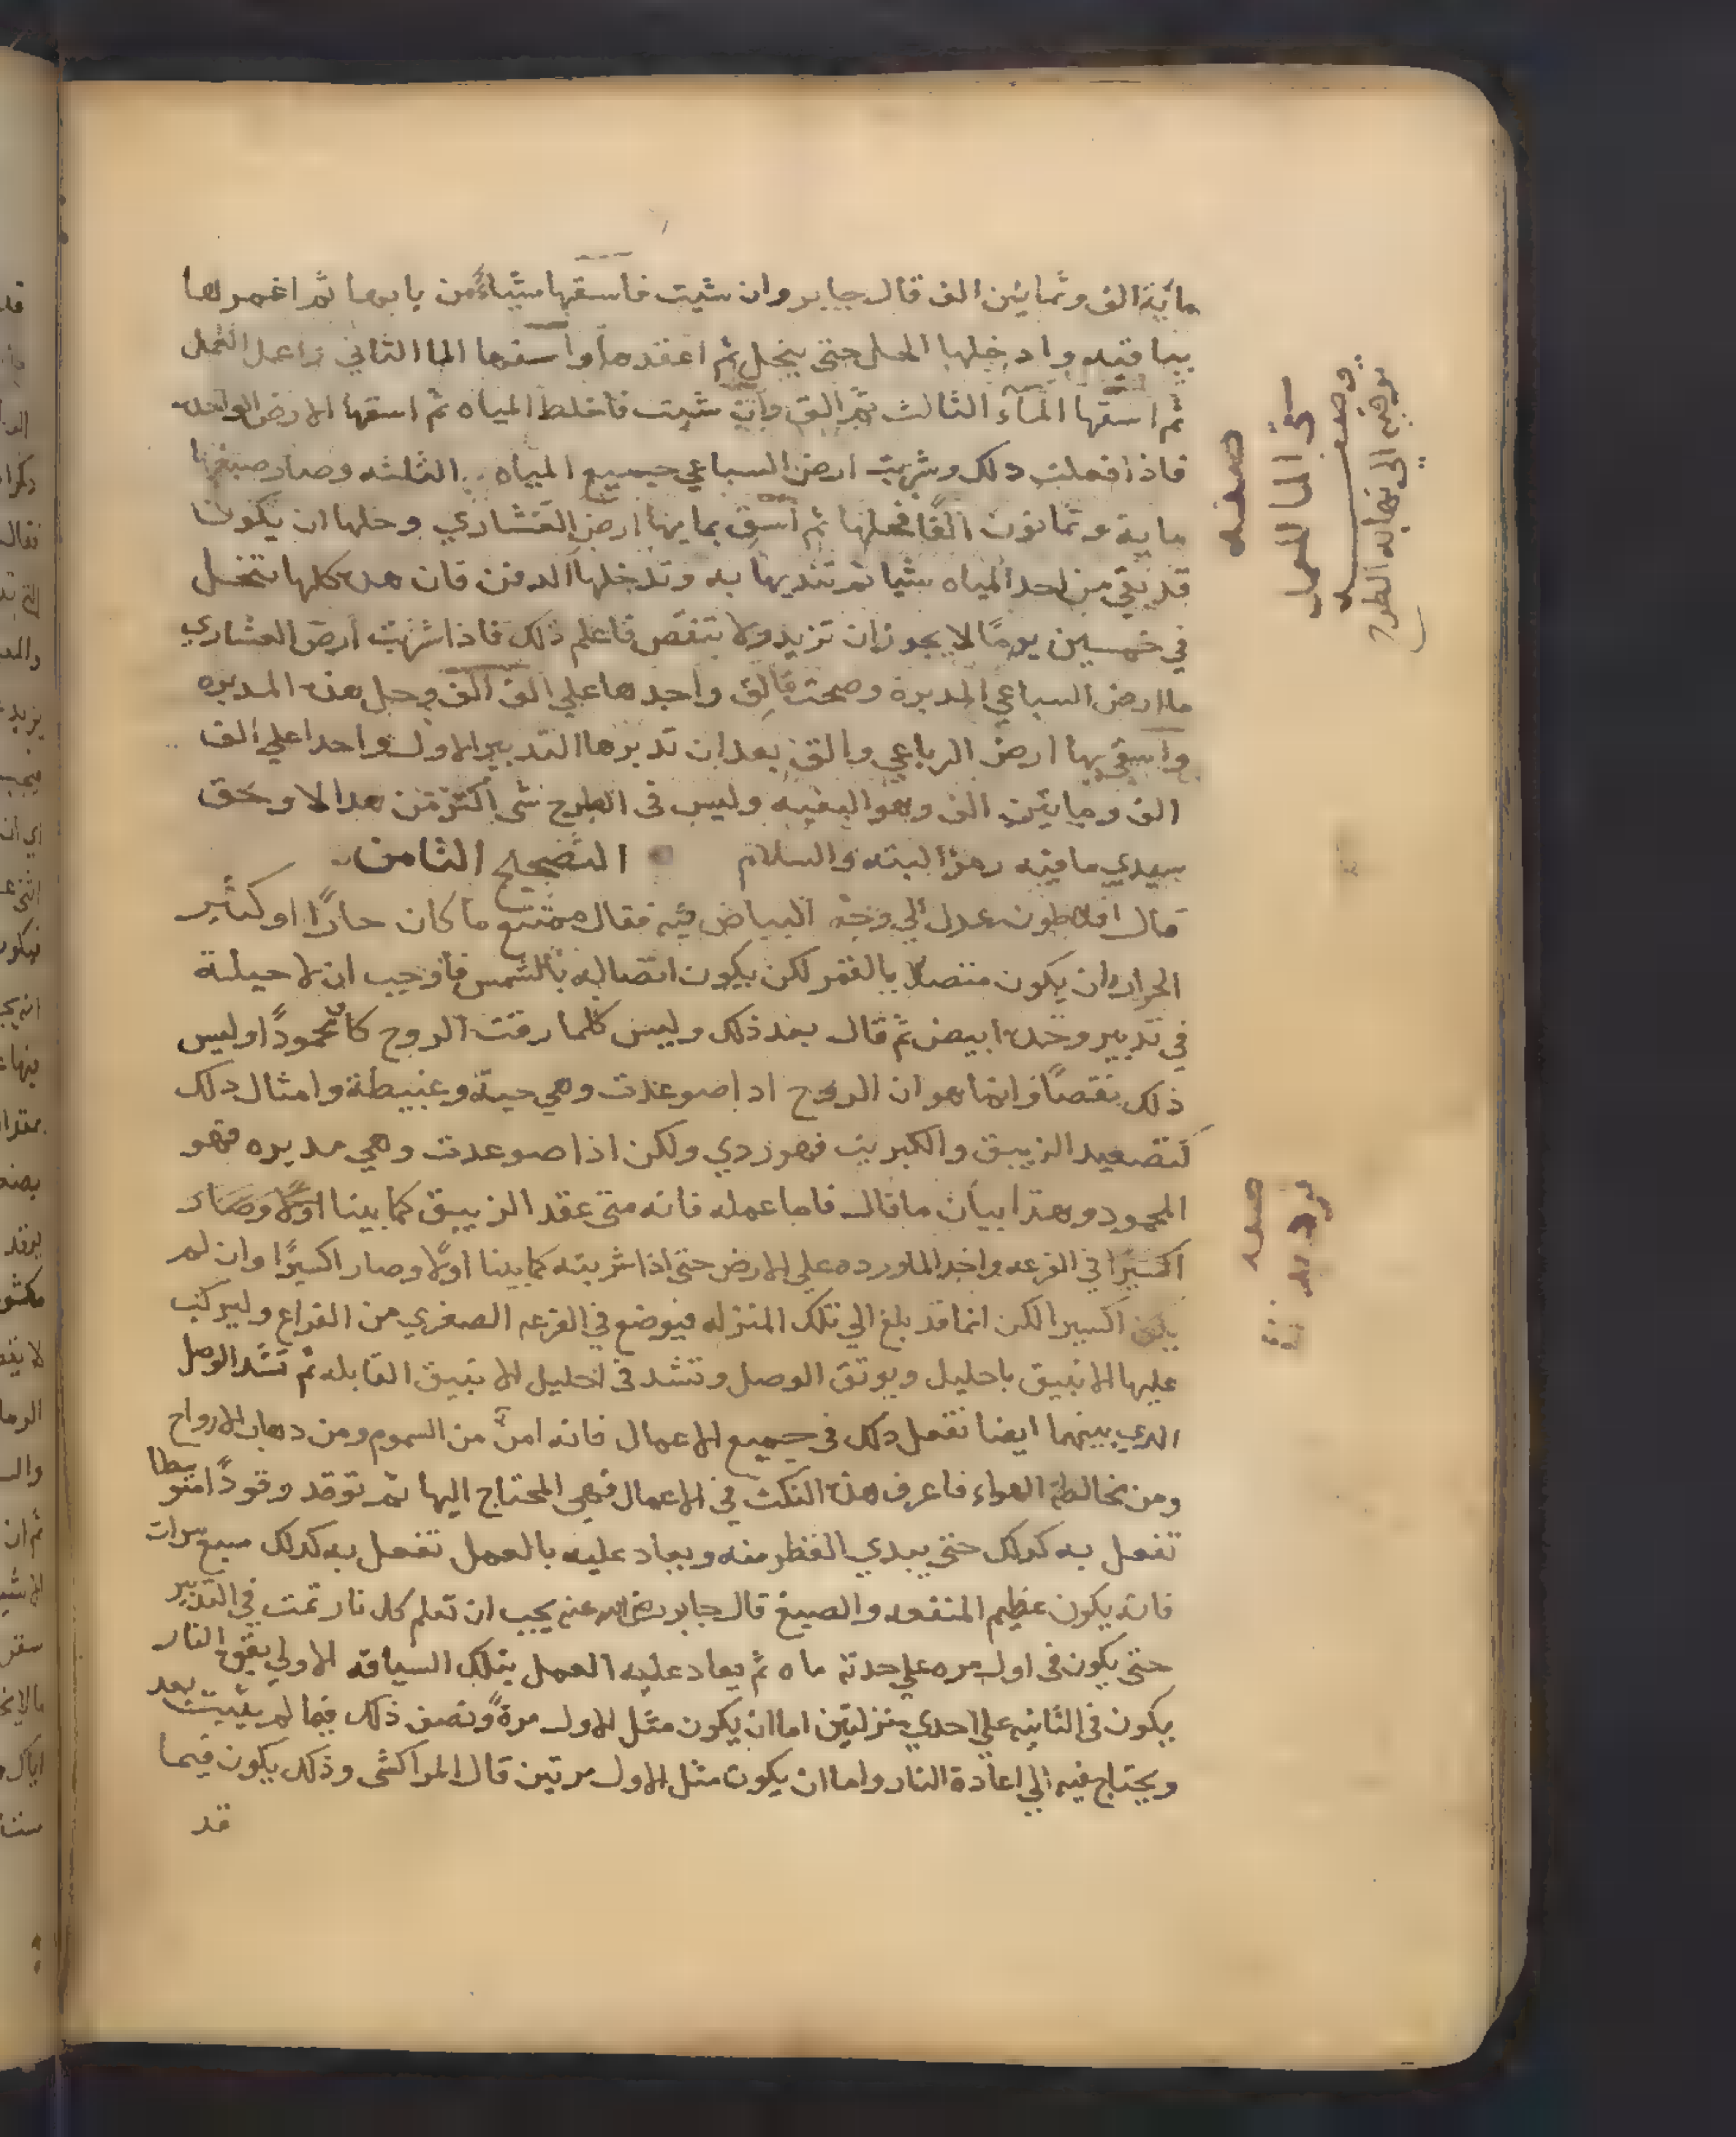 مائة الف وثمانين الف قال جابر وان شيت فاسقها شياء من بابها ثم اغمرها
بباقيه وادخلها الحل حتى ينحل ثم اعقدها واسقها الما الثاني واعمل العمل
ثم اسقها الماء الثالث ثم الق وان شيت فاخلط المياه ثم اسقها الارض الواحده
فاذا فعلت دلك وشربت ارض السباعي جميع المياه الثلثه وصار صبغها
ماية وثمانون الفا فحلها ثم اسق بمايها ارض العشاري وحلها ان يكون
قد بقي من احد المياه شيا ثم تنديها به وتدخلها الدفن فان هده كلها تنحل
في خمسين يوما لا يجوز ان تزيد ولا تنقص فاعلم ذلك فاذا شربت ارض العشاري
ما ارض السباعي المدبرة وصحت فالق واحدها على الف الف وحل هذه المدبره
واسق بها ارض الرباعي والق بعد ان تدبرها التدبير الاول واحدا على الف
الف ومايتين الف وهو البغيه وليس في الطرح شى اكثر من هدا لا وحق
سيدي ما فيه رمز البته والسلام التصحيح الثامن
قال افلاطون عدل الي وجه البياض فيه فقال ممتنع ما كان حارا او كثير
الحراره ان يكون متصلا بالقمر لكن يكون اتصاله بالشمس فاوجب ان لا حيلة
في تدبير وحده ابيض ثم قال بعد ذلك وليس كلما رقت الروح كا محمودا وليس
ذلك نقصا وانما هو ان الروح ادا صوعدت وهي حية وعبيطة وامثال دلك
كتصعيد الزيبق والكبريت فهو ردي ولكن اذا صوعدت وهي مدبره فهو
المحمود وهذا بيان ما قال فاما عمله فانه متى عقد الزيبق كما بينا اولا وصار
اكسيرا في القرعه واخد الما ورده على الارض حتى اذا شربته كما بينا اولا وصار اكسيرا وان لم
يكن اكسيرا لكن انما قد بلغ الي تلك المنزله فيوضع في القرعه الصغري من القراع وليركب
عليها الانبيق باحليل ويوثق الوصل وتشد في احليل الانبيق القابله ثم تشد الوصل
الدي بينهما ايضا تفعل دلك في جميع الاعمال فانه امن من السموم ومن دهاب الارواح
ومن مخالطة الهواء فاعرف هذه النكت في الاعمال فهي المحتاج اليها ثم توقد وقودا متوسطا
تفعل به كدلك حتى يبدي القطر منه ويعاد عليه بالعمل تفعل به كدلك سبع مرات
فانه يكون عظيم المنفعه والصبغ قال جابر رضى الله عنه يجب ان تعلم كل نار تمت في التدبير
حتى يكون في اول مره على حدته ماه ثم يعاد عليه العمل بتلك السياقه الاولي بقوة النار
يكون في الثانيه على احدي منزلتين اما ان يكون مثل الاول مرة ونصف ذلك فيما لم يثبت بعد
ويحتاج فيه الي اعادة النار واما ان يكون مثل الاول مرتين قال المراكشى وذلك يكون فيما
قد
صفه
سقي الما للعمل